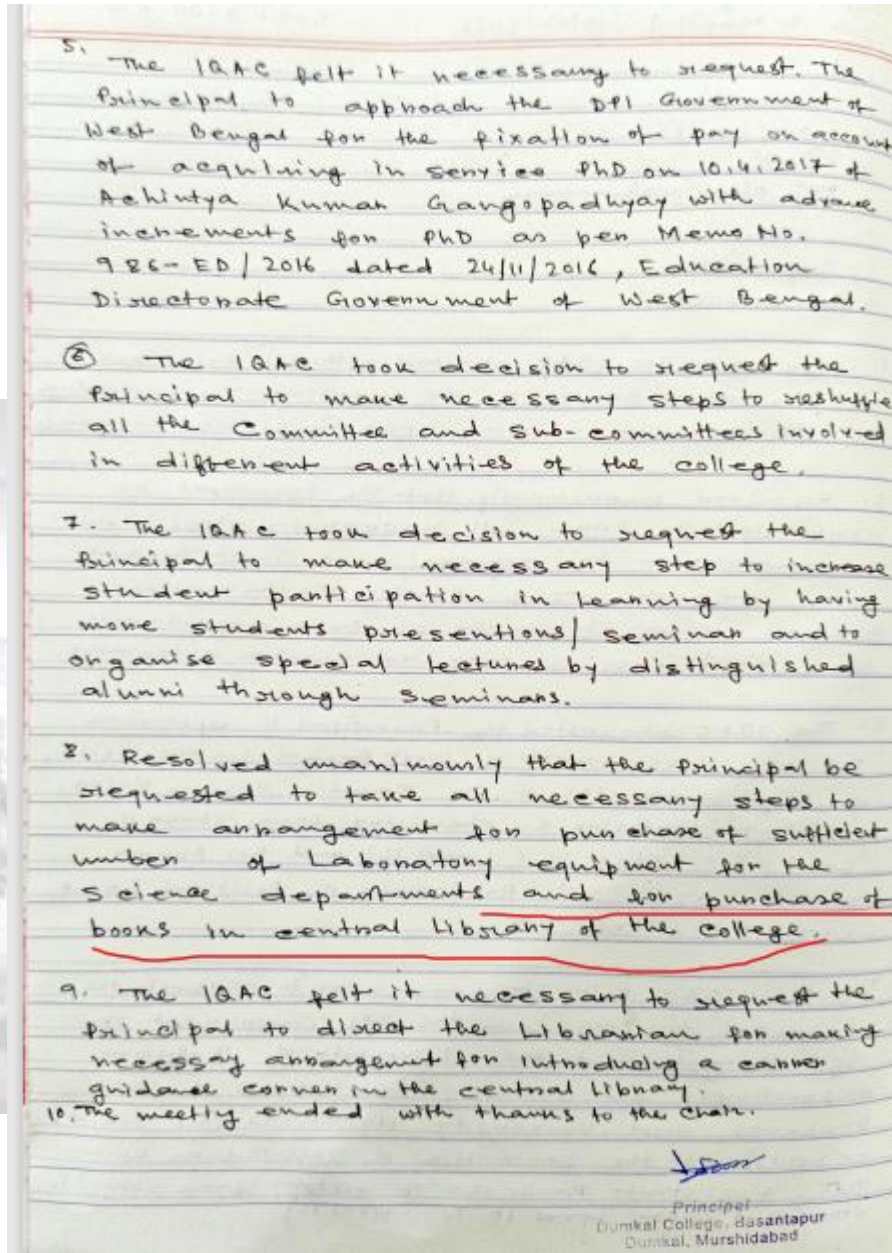 5.
The IQAC felt it necessary to request. The
Principal to approach the DPI Government of
West Bengal for the fixation of pay on account
of acquiring in service PhD on 10.4.2017 of
Achintya Kumar Gangopadhyay with advance
increments for PhD as per Memo No.
986-ED/2016 dated 24/11/2016, Education
Directorate Government of West Bengal.
6 The IQAC took decision to request the
Principal to make necessary steps to reshuffle
all the Committee and sub-committees involved
in different activities of the college.
7. The IQAC took decision to request the
Principal to make necessary step to increase
student participation in learning by having
more students presentions/ seminar and to
organise special lectures by distinguished
alumni through seminars.
8. Resolved unanimously that the Principal be
requested to take all necessary steps to
make arrangement for purchase of sufficient
number of Laboratory equipment for the
Science departments and for purchase of
books in central Library of the college.
9. The IQAC felt it necessary to request the
Principal to direct the Librarian for making
necessay arrangement for introducing a carrer
guidance corner in the central library.
10. The meeting ended with thanks to the chair.
Principal
Dumkal College, Basantapur
Dumkal, Murshidabad